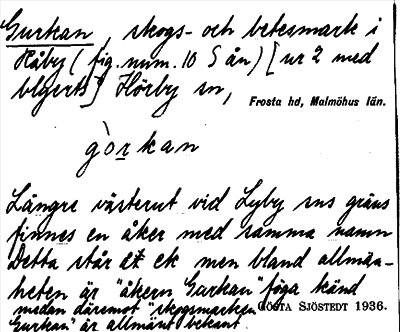 Gurkan, skogs- och betesmark i
Råby (fig. num. 10 S ån) [ur 2 med
blgerts] Hörby sn,
Frosta hd, Malmöhus län.
gòrkan
Längre västerut vid Lyby sns gräns
finnes en åker med samma namn
Detta står å ek men bland allmän-
heten är "åkern Gurkan" föga känd
medan däremot "skogsmarken
GÖSTA SJÖSTEDT 1936.
Gurkan" är allmänt bekant.